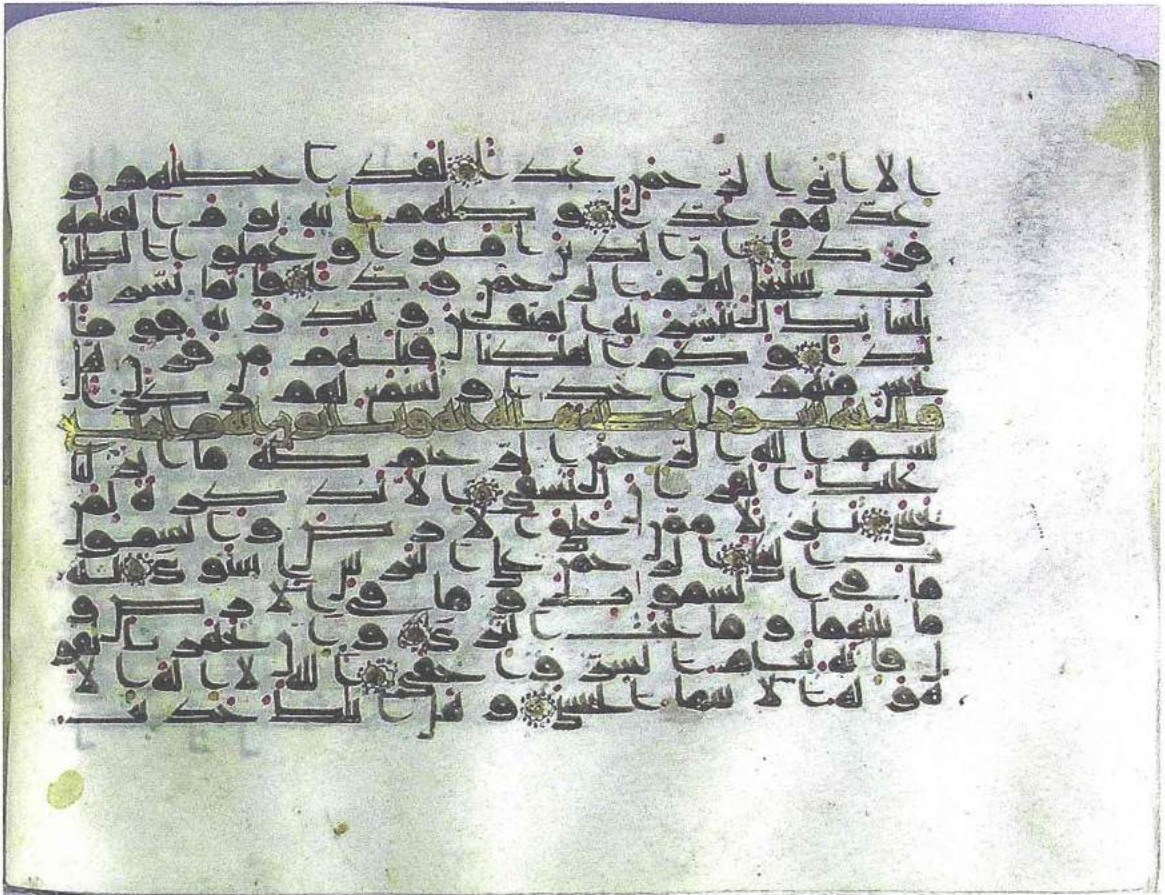 الا اتى الرحمن عبدا لقد احصيهم و
عدهم عدا وكلهم اتيه يوم القيمة
فردا ان الذين امنوا وعملوا الصلح
ت سيجعل لهم الرحمن ودا فانما يسرنه
بلسانك لتبشر به المتقين وتنذر به قوما
لدا وكم اهلكنا قبلهم من قرن هل
تحس منهم من احد او تسمع لهم ركزا
سورة طه
بسم الله الرحمن الرحيم طه ما انزلنا
عليك القران لتشقى الا تذكرة لمن
يخشى تنزيلا ممن خلق الارض والسمو
ت العلى الرحمن على العرش استوى له
ما فى السموت وما فى الارض و
ما بينهما وما تحت الثرى وان تجهر بالقو
ل فانه يعلم السر واخفى الله لا اله الا
هو له الاسما الحسنى وهل اتيك حديث